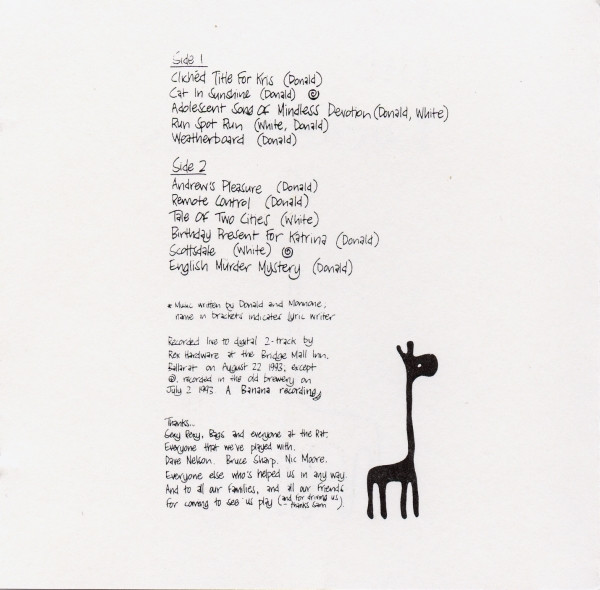 Side 1
Clichéd Title For Kris (Donald)
Cat In Sunshine (Donald) @
Adolescent Song Of Mindless Devotion (Donald, White)
Run Spot Run (White, Donald)
Weatherboard (Donald)
Side 2
Andrew's Pleasure (Donald)
Remote Control (Donald)
Tale Of Two Cities (White)
Birthday Present For Katrina (Donald)
Scottsdale (White) @
English Murder Mystery (Donald)
* Music written by Donald and Monnone;
name in brackets indicates lyric writer
Recorded live to digital 2-track by
Rex Hardware at the Bridge Mall Inn,
Ballarat on August 22 1993, except
@, recorded in the old brewery on
July 2 1993. A Banana recording
Thanks...
Sexy Rexy, Bags and everyone at the Rat.
Everyone that we've played with.
Dave Nelson. Bruce Sharp. Nic Moore.
Everyone else who's helped us in any way.
And to all our families, and all our friends
for coming to see us play (and for driving us - thanks Sam).